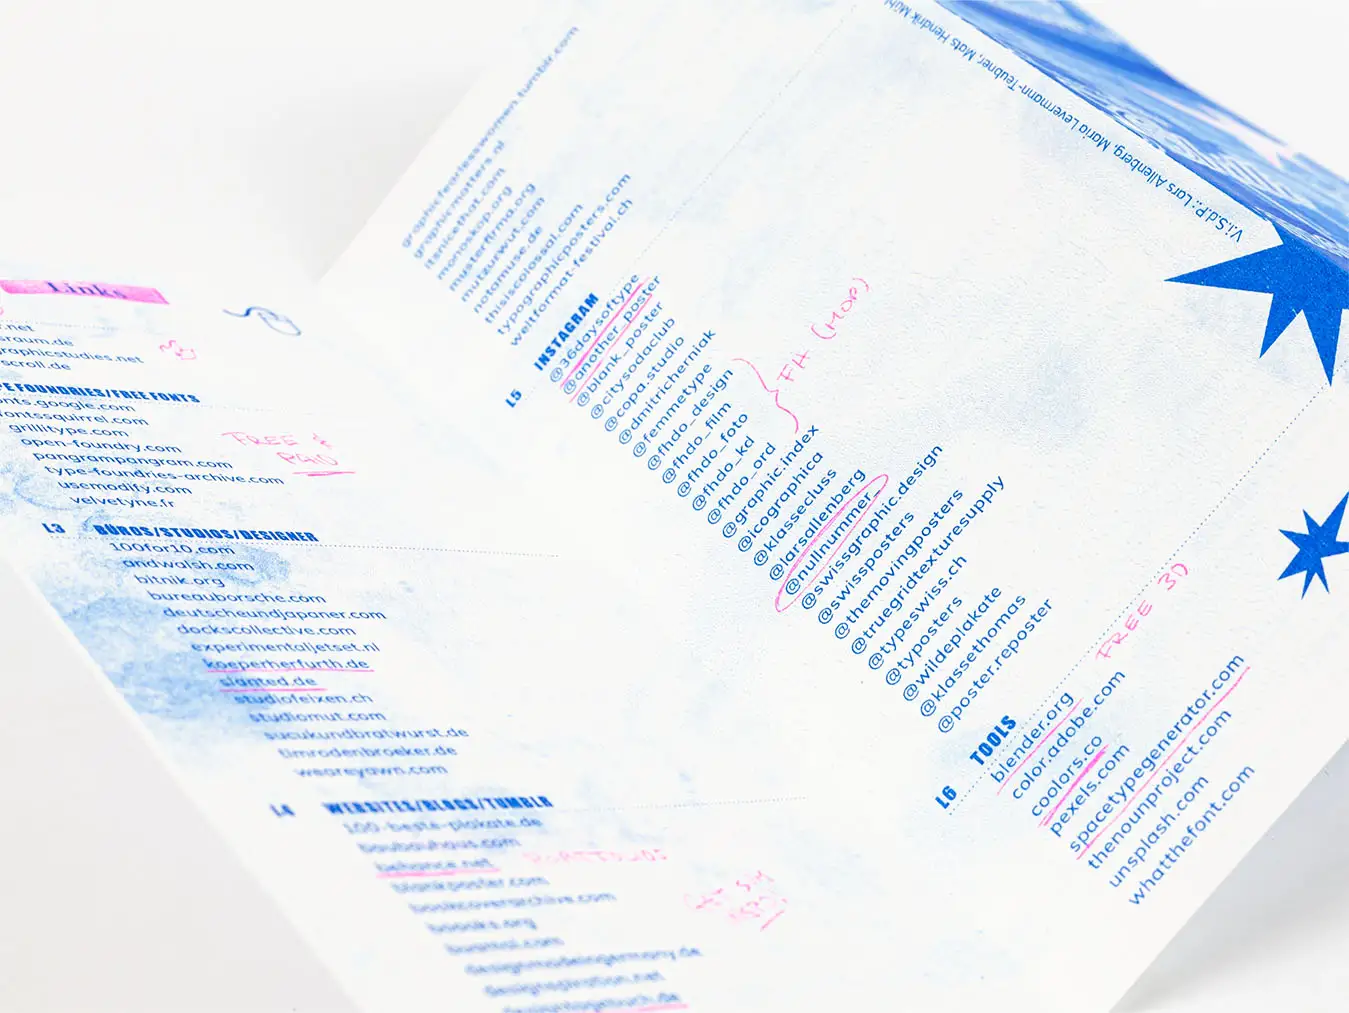 Links
.net
sraum.de
raphicstudies.net
scroll.de
PE FOUNDRIES/FREE FONTS
onts.google.com
fontssquirrel.com
grillitype.com
open-foundry.com
pangrampangram.com
type-foundries-archive.com
usemodify.com
velvetyne.fr
FREE &
L3 BÜROS/STUDIOS/DESIGNER
100for10.com
andwalsh.com
bitnik.org
bureauborsche.com
deutscheundjapaner.com
dockscollective.com
experimentaljetset.nl
koeperherfurth.de
slanted.de
studiofeixen.ch
studiomut.com
sucukundbratwurst.de
timrodenbroeker.de
weareyawn.com
L4 WEBSITES/BLOGS/TUMBLR
100-beste-plakate.de
baubauhaus.com
behance.net
PORTFOLIOS
blankposter.com
bookcoverarchive.com
boooks.org
designmadeingermany.de
designspiration.net
designtagebuch.de
graphicfearlesswomen.tumblr.com
graphicmatters.nl
itsnicethat.com
monoskop.org
musterfirma.org
mutzurwut.com
notamuse.de
thisiscolossal.com
typographicposters.com
weltformat-festival.ch
L5 INSTAGRAM
@36daysoftype
@another_poster
@blank_poster
@citysodaclub
@copa.studio
@dmitricherniak
@femmetype
@fhdo_design
@fhdo_film
@fhdo_foto
@fhdo_kd
@fhdo_ord
FH (MOD)
@graphic.index
@icographica
@klassecluss
@larsallenberg
@nullnummer_
@swissgraphic.design
@swissposters
@themovingposters
@truegridtexturesupply
@typeswiss.ch
@typosters
@wildeplakate
@klassethomas
@poster.reposter
L6 TOOLS
blender.org
FREE 3D
color.adobe.com
coolors.co
pexels.com
spacetypegenerator.com
thenounproject.com
unsplash.com
whatthefont.com
V.i.S.d.P.: Lars Allenberg, Maria Levermann-Teubner, Mats Hendrik Mühl